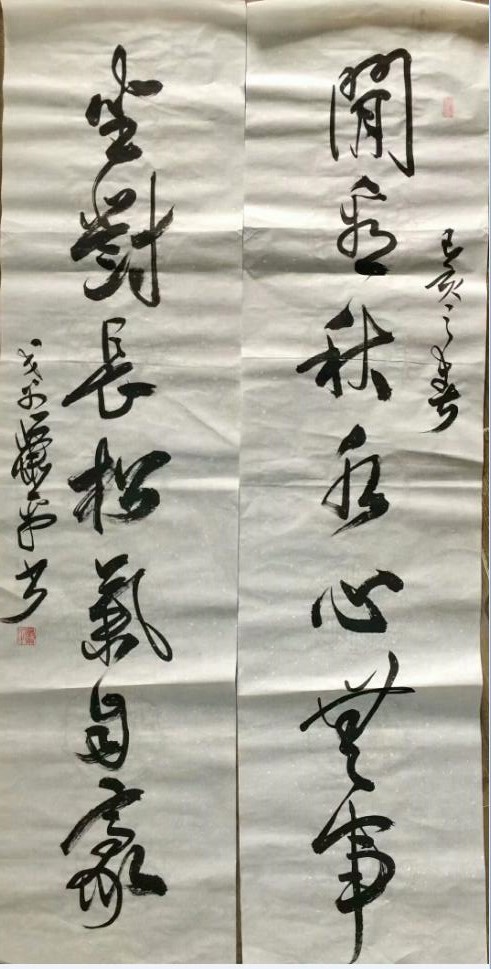 己亥之春
閒看秋水心無事
坐對長松氣自豪
書